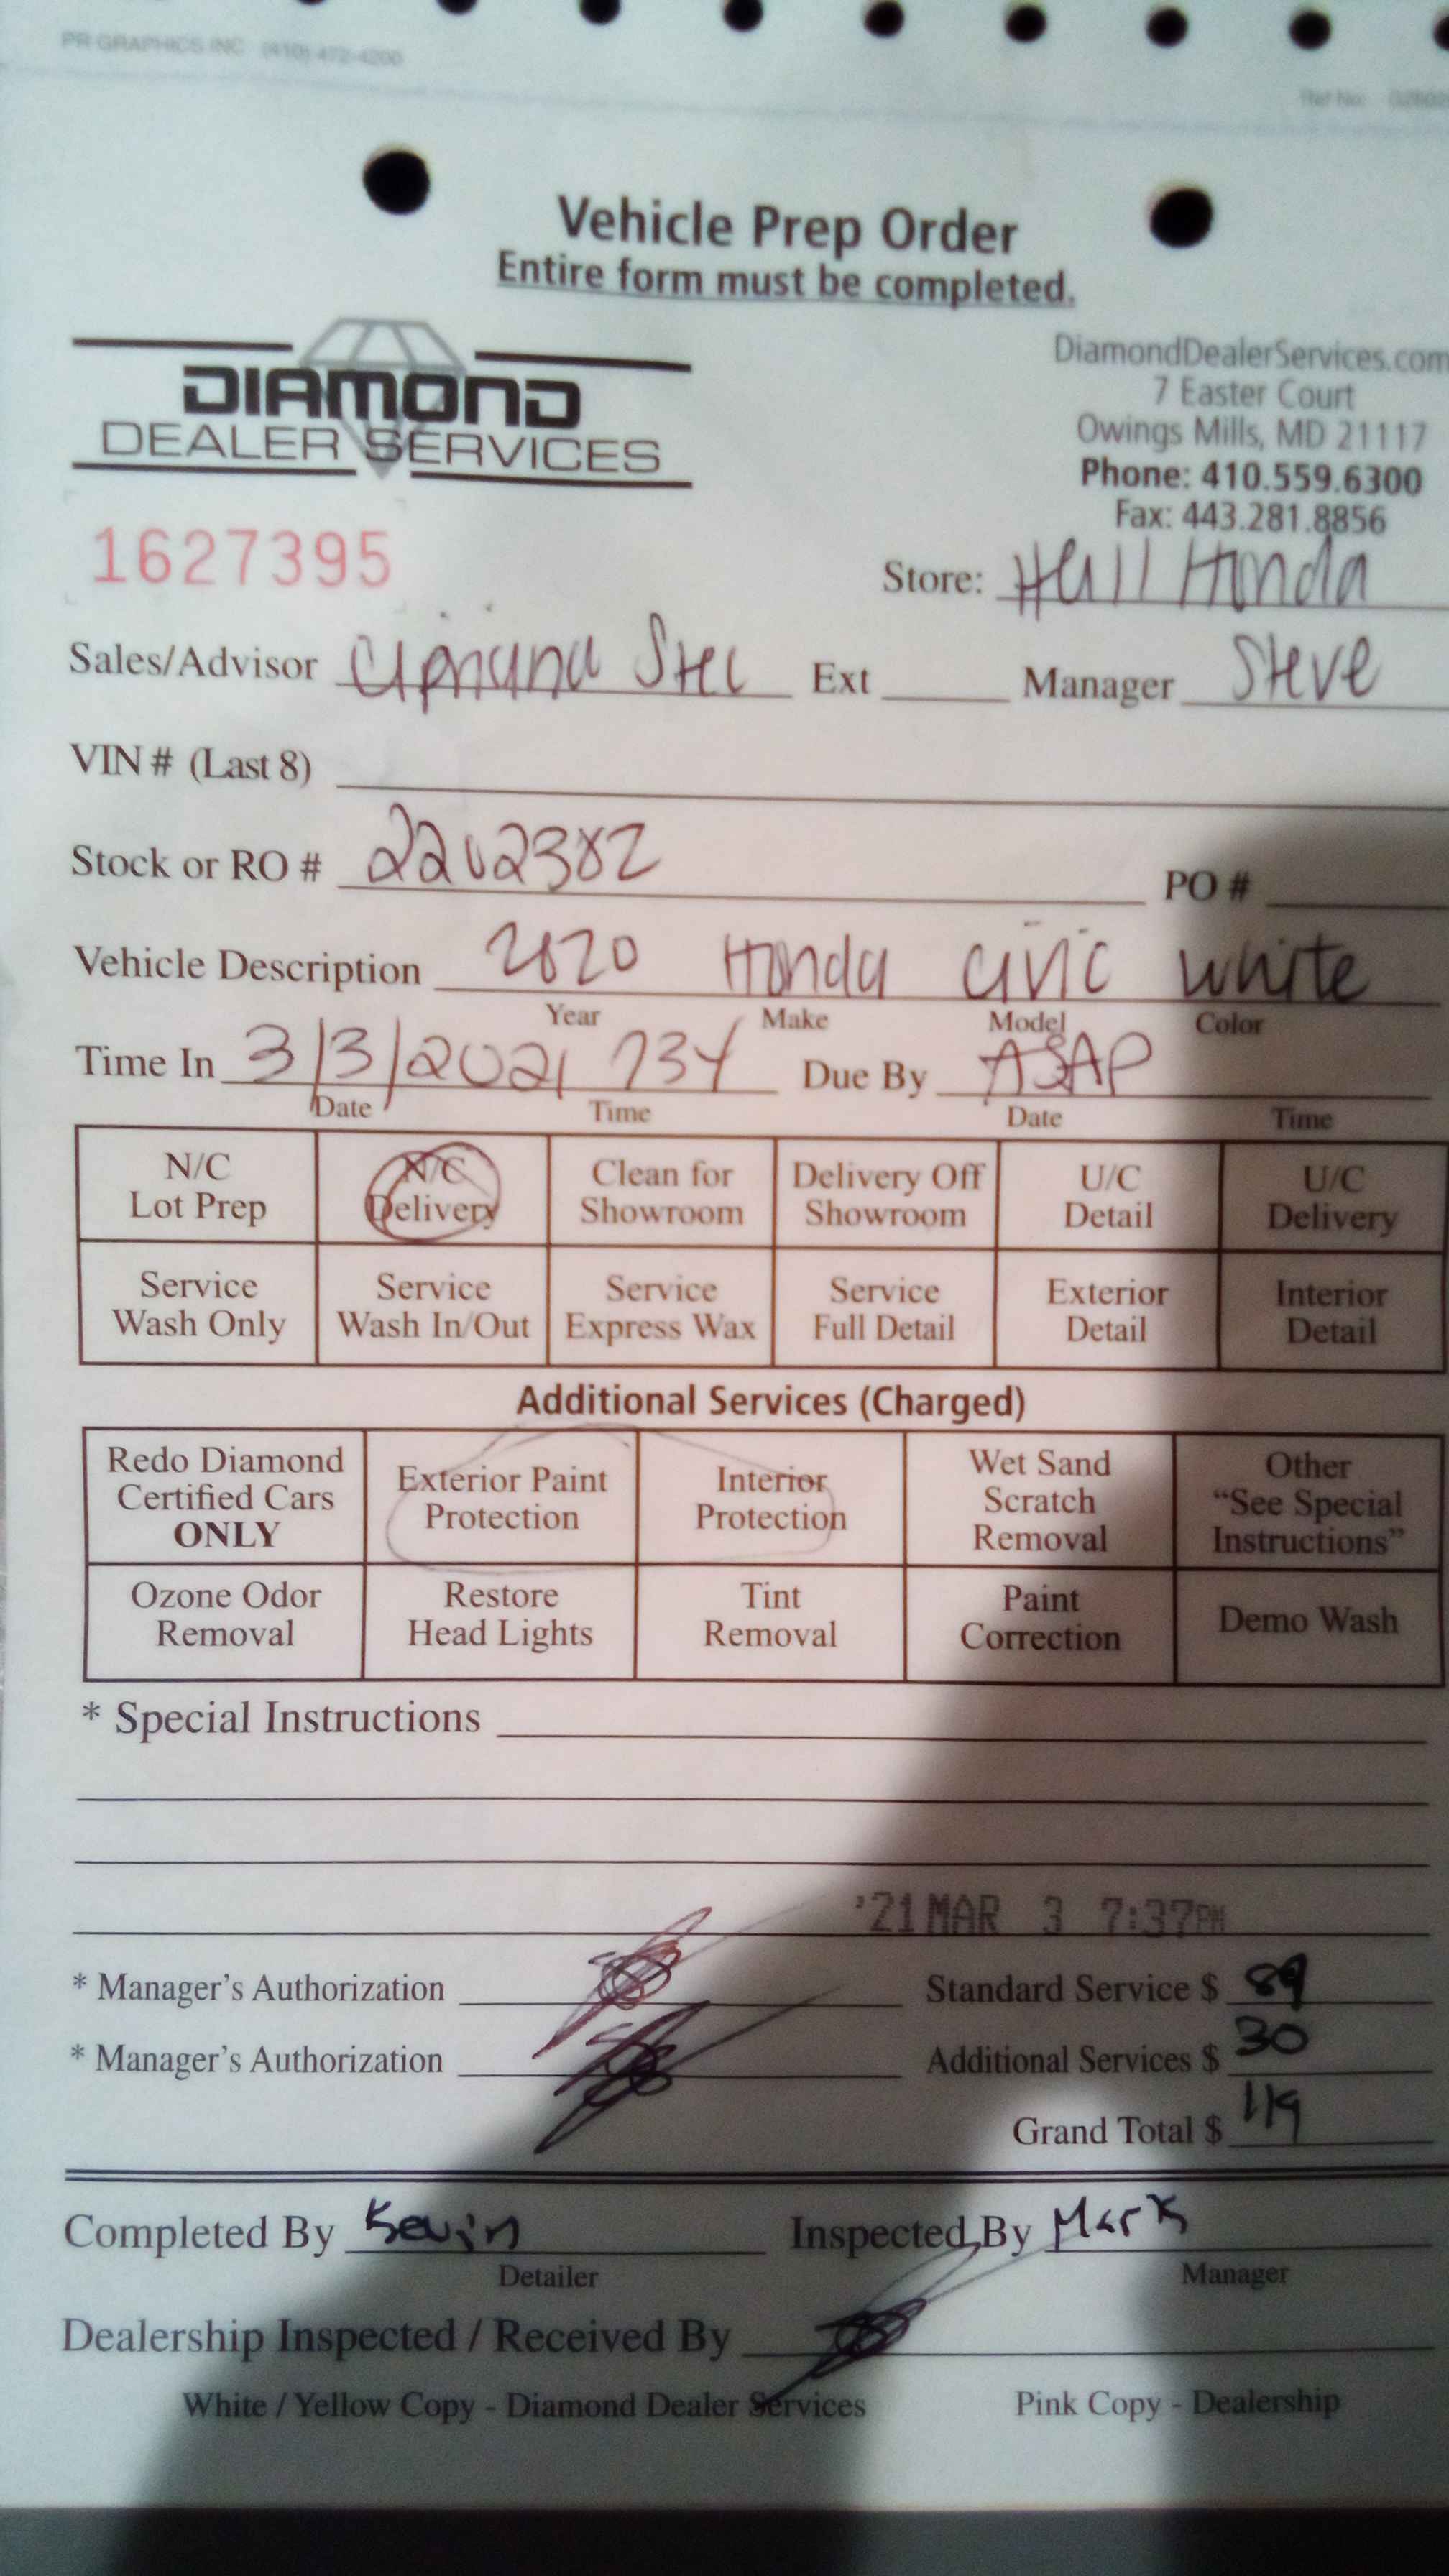 PR GRAPHICS INC (410) 472-4200
Ref No:
Vehicle Prep Order
Entire form must be completed.
DIAMOND
DEALER SERVICES
DiamondDealerServices.com
7 Easter Court
Owings Mills, MD 21117
Phone: 410.559.6300
Fax: 443.281.8856
1627395
Store: Hall Honda
Sales/Advisor Ext Manager Steve
VIN # (Last 8)
Stock or RO # 2202382 PO #
Vehicle Description 2020 Honda Civic White
Year Make Model Color
Time In 3/3/2021 734 Due By ASAP
Date Time Date Time
N/C Lot Prep N/C Delivery Clean for Showroom Delivery Off Showroom U/C Detail U/C Delivery
Service Wash Only Service Wash In/Out Service Express Wax Service Full Detail Exterior Detail Interior Detail
Additional Services (Charged)
Redo Diamond Certified Cars ONLY Exterior Paint Protection Interior Protection Wet Sand Scratch Removal Other "See Special Instructions"
Ozone Odor Removal Restore Head Lights Tint Removal Paint Correction Demo Wash
* Special Instructions
'21 MAR 3 7:37PM
* Manager's Authorization Standard Service $ 89
* Manager's Authorization Additional Services $ 30
Grand Total $ 119
Completed By Kevin Inspected By Mark
Detailer Manager
Dealership Inspected / Received By
White / Yellow Copy - Diamond Dealer Services Pink Copy - Dealership